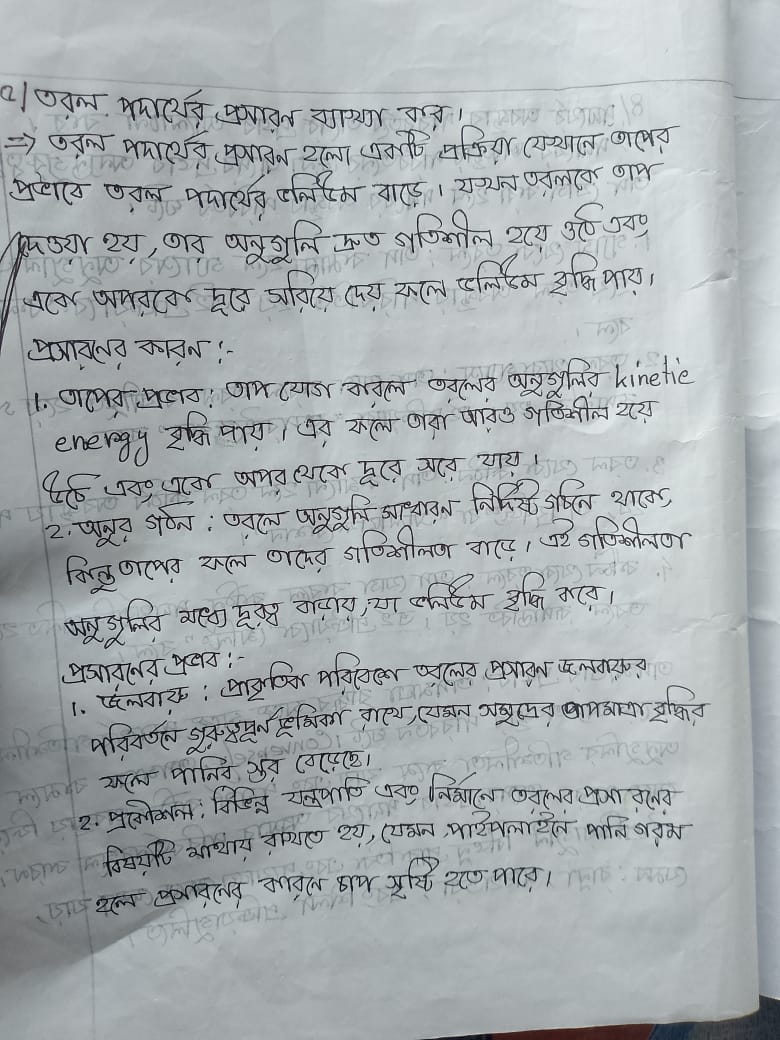 ৫/ তরল পদার্থের প্রসারন ব্যাখ্যা কর।
⇒ তরল পদার্থের প্রসারন হলো একটি প্রক্রিয়া যেখানে তাপের
প্রভাবে তরল পদার্থের ভলিউম বাড়ে। যখন তরলকে তাপ
দেওয়া হয়, তার অনুগুলি দ্রুত গতিশীল হয়ে ওঠে এবং
একে অপরকে দূরে সরিয়ে দেয় ফলে ভলিউম বৃদ্ধি পায়।
প্রসারনের কারন :-
1. তাপের প্রভাব : তাপ যোগ করলে তরলের অনুগুলির kinetic
energy বৃদ্ধি পায়। এর ফলে তারা আরও গতিশীল হয়ে
উঠে এবং একে অপর থেকে দূরে সরে যায়।
2. অনুর গঠন : তরলে অনুগুলি সাধারন নির্দিষ্ট গঠনে থাকে,
কিন্তু তাপের ফলে তাদের গতিশীলতা বাড়ে। এই গতিশীলতা
অনুগুলির মধ্যে দূরত্ব বাড়ায়, যা ভলিউম বৃদ্ধি করে।
প্রসারনের প্রভাব :-
1. জলবায়ু : প্রাকৃতিক পরিবেশে তরলের প্রসারন জলবায়ুর
পরিবর্তনে গুরুত্বপূর্ন ভূমিকা রাখে, যেমন সমুদ্রের তাপমাত্রা বৃদ্ধির
ফলে পানির স্তর বেড়েছে।
2. প্রকৌশল : বিভিন্ন যন্ত্রপাতি এবং নির্মানে তরলের প্রসারনের
বিষয়টি মাথায় রাখতে হয়, যেমন পাইপলাইনে পানি গরম
হলে প্রসারনের কারনে চাপ সৃষ্টি হতে পারে।